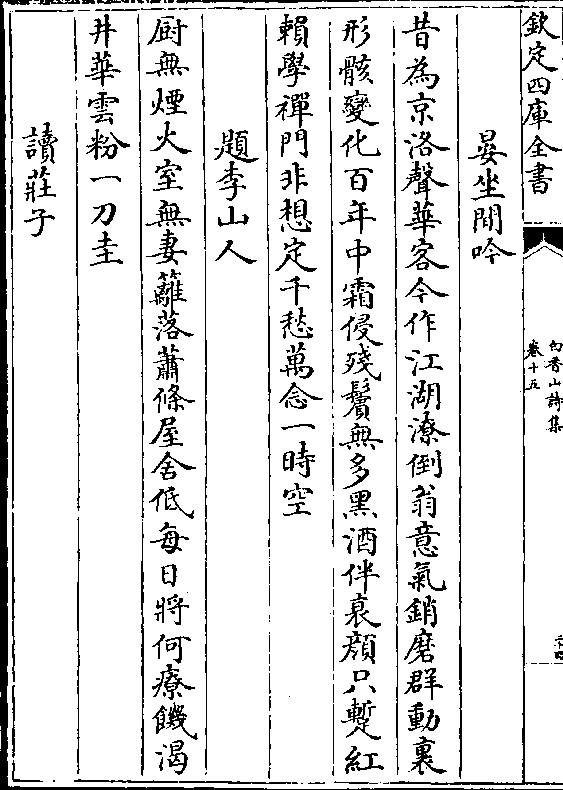 欽定四庫全書
白香山詩集
卷十五
二十四
晏坐閒吟
昔為京洛聲華客今作江湖潦倒翁意氣銷磨群動裏
形骸變化百年中霜侵殘鬢無多黑酒伴衰顔只暫紅
賴學禪門非想定千愁萬念一時空
題李山人
厨無煙火室無妻籬落蕭條屋舍低每日將何療饑渴
井華雲粉一刀圭
讀莊子